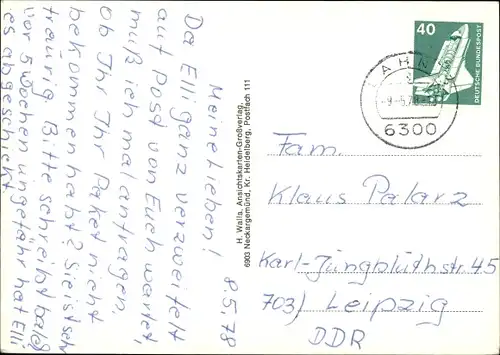 8.5.78
Meine Lieben!
Da Elli ganz verzweifelt
auf Post von Euch wartet,
muß ich mal anfragen
ob Ihr Ihr Paket nicht
bekommen habt? Sie ist sehr
traurig Bitte schreibt bald
vor 5 Wochen ungefähr hat Elli
es abgeschickt
H. Walla, Ansichtskarten-Großverlag,
6903 Neckargemünd, Kr. Heidelberg, Postfach 111
40
DEUTSCHE BUNDESPOST
6300
Fam.
Klaus Palarz
Karl-Jüngblüthstr. 45
703) Leipzig
DDR